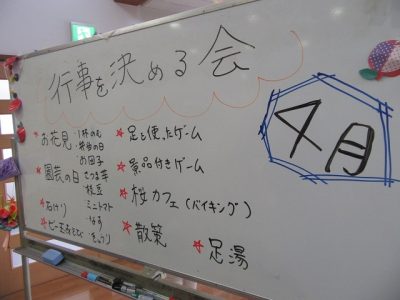 行事を決める会
4月
★お花見・1杯のむ
・挨拶の日
・お団子
★園芸の日 さつま芋
枝豆
★石けり ミニトマト
・なす
★ビー玉あそび・きゅうり
★足を使ったゲーム
★景品付きゲーム
★桜カフェ(バイキング)
★散策
★足湯